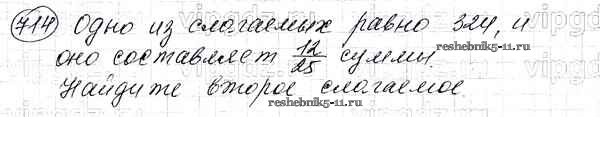 714 Одно из слагаемых равно 324, и
оно составляет 12/25 суммы.
reshebnik5-11.ru
Найдите второе слагаемое.
reshebnik5-11.ru